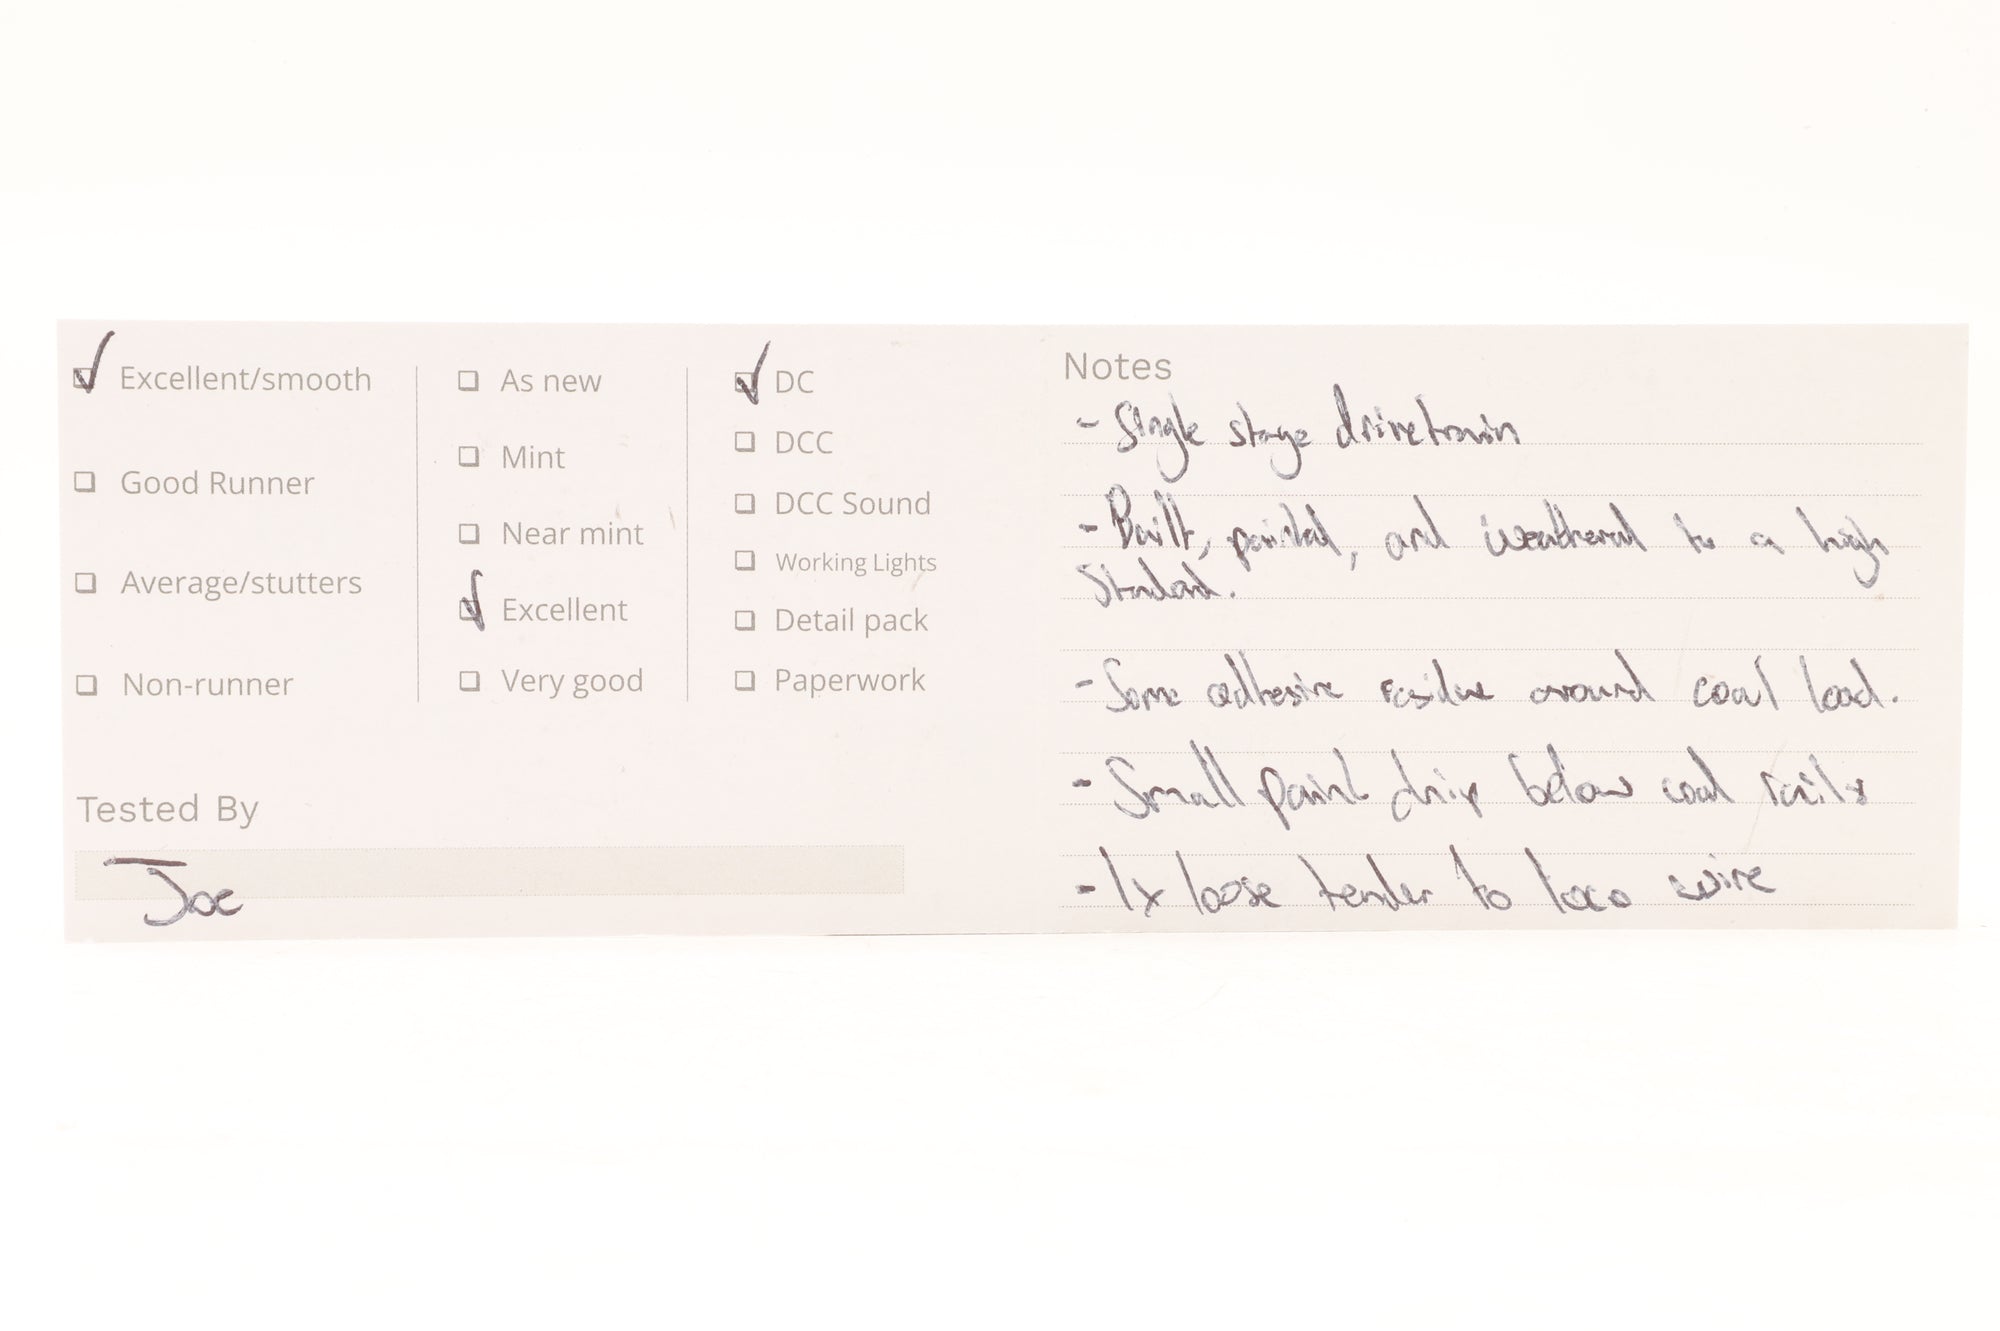 Excellent/smooth
Good Runner
Average/stutters
Non-runner
As new
Mint
Near mint
Excellent
Very good
DC
DCC
DCC Sound
Working Lights
Detail pack
Paperwork
Tested By
Joe
Notes
- Single stage drivetrain
- Built, painted, and weathered to a high
Standard.
- Some adhesive residue around coal load.
- Small paint drip below coal rails
- 1x loose tender to loco wire